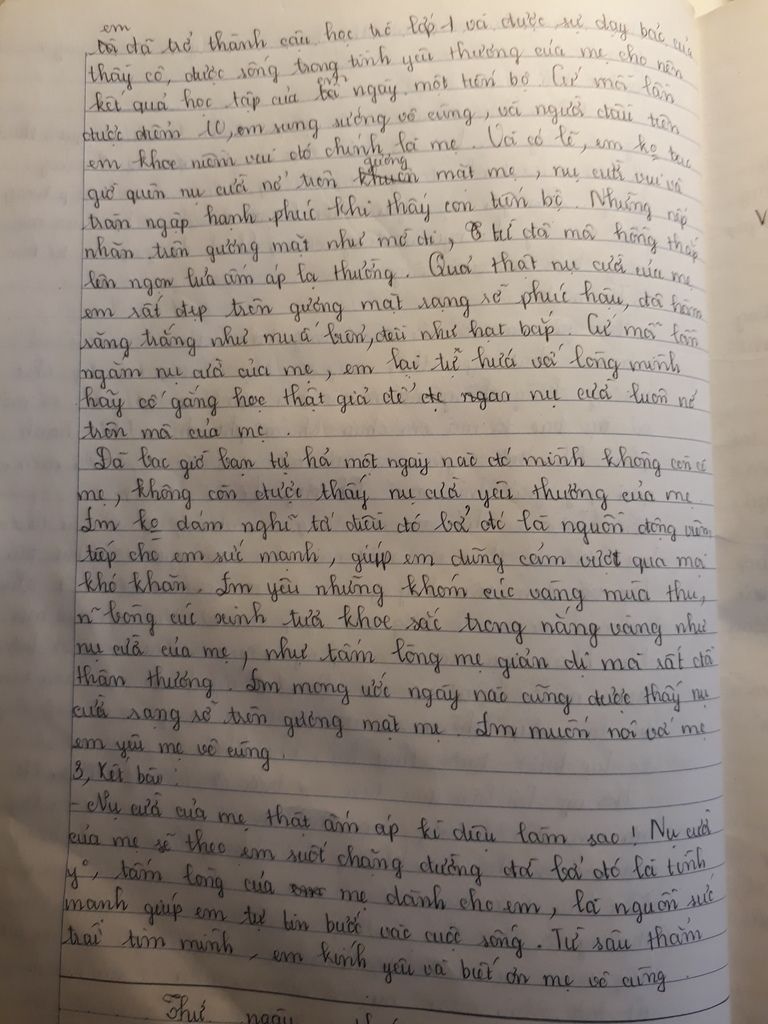 em
đã trở thành cậu học trò lớp 1 với được sự dạy bảo của
thầy cô, được sống trong tình yêu thương của mẹ cho nên
kết quả học tập của em ngày một tiến bộ. Cứ mỗi lần
được điểm 10, em sung sướng vô cùng, và người đầu tiên
em khoe niềm vui đó chính là mẹ. Và có lẽ, em ko bao
gương
giờ quên nụ cười nở trên mặt mẹ, nụ cười vui và
tràn ngập hạnh phúc khi thấy con tiến bộ. Những nếp
nhăn trên gương mặt như mờ đi, từ đôi mắt hồng thắp
lên ngọn lửa ấm áp lạ thường. Quả thật nụ cười của mẹ
em rất đẹp trên gương mặt rạng rỡ phúc hậu, đôi hàm
răng trắng như muối biển, đều như hạt bắp. Cứ mỗi lần
ngắm nụ cười của mẹ, em lại tự hứa với lòng mình
hãy cố gắng học thật giỏi để nụ cười luôn nở
trên môi của mẹ.
Đã bao giờ bạn tự hỏi một ngày nào đó mình không còn có
mẹ, không còn được thấy nụ cười yêu thương của mẹ.
Em ko dám nghĩ tới điều đó bởi đó là nguồn động viên
tiếp cho em sức mạnh, giúp em dũng cảm vượt qua mọi
khó khăn. Em yêu những khóm cúc vàng mùa thu,
n~ bông cúc xinh tươi khoe sắc trong nắng vàng như
nụ cười của mẹ, như tấm lòng mẹ giản dị mà rất đỗi
thân thương. Em mong ước ngày nào cũng được thấy nụ
cười rạng rỡ trên gương mặt mẹ. Em muốn nói với mẹ
em yêu mẹ vô cùng.
3, Kết bài:
- Nụ cười của mẹ thật ấm áp kì diệu làm sao! Nụ cười
của mẹ sẽ theo em suốt chặng đường đời bởi đó là tình
y°, tấm lòng của mẹ dành cho em, là nguồn sức
mạnh giúp em tự tin bước vào cuộc sống. Từ sâu thẳm
trái tim mình, em kính yêu và biết ơn mẹ vô cùng.
Thứ ngày